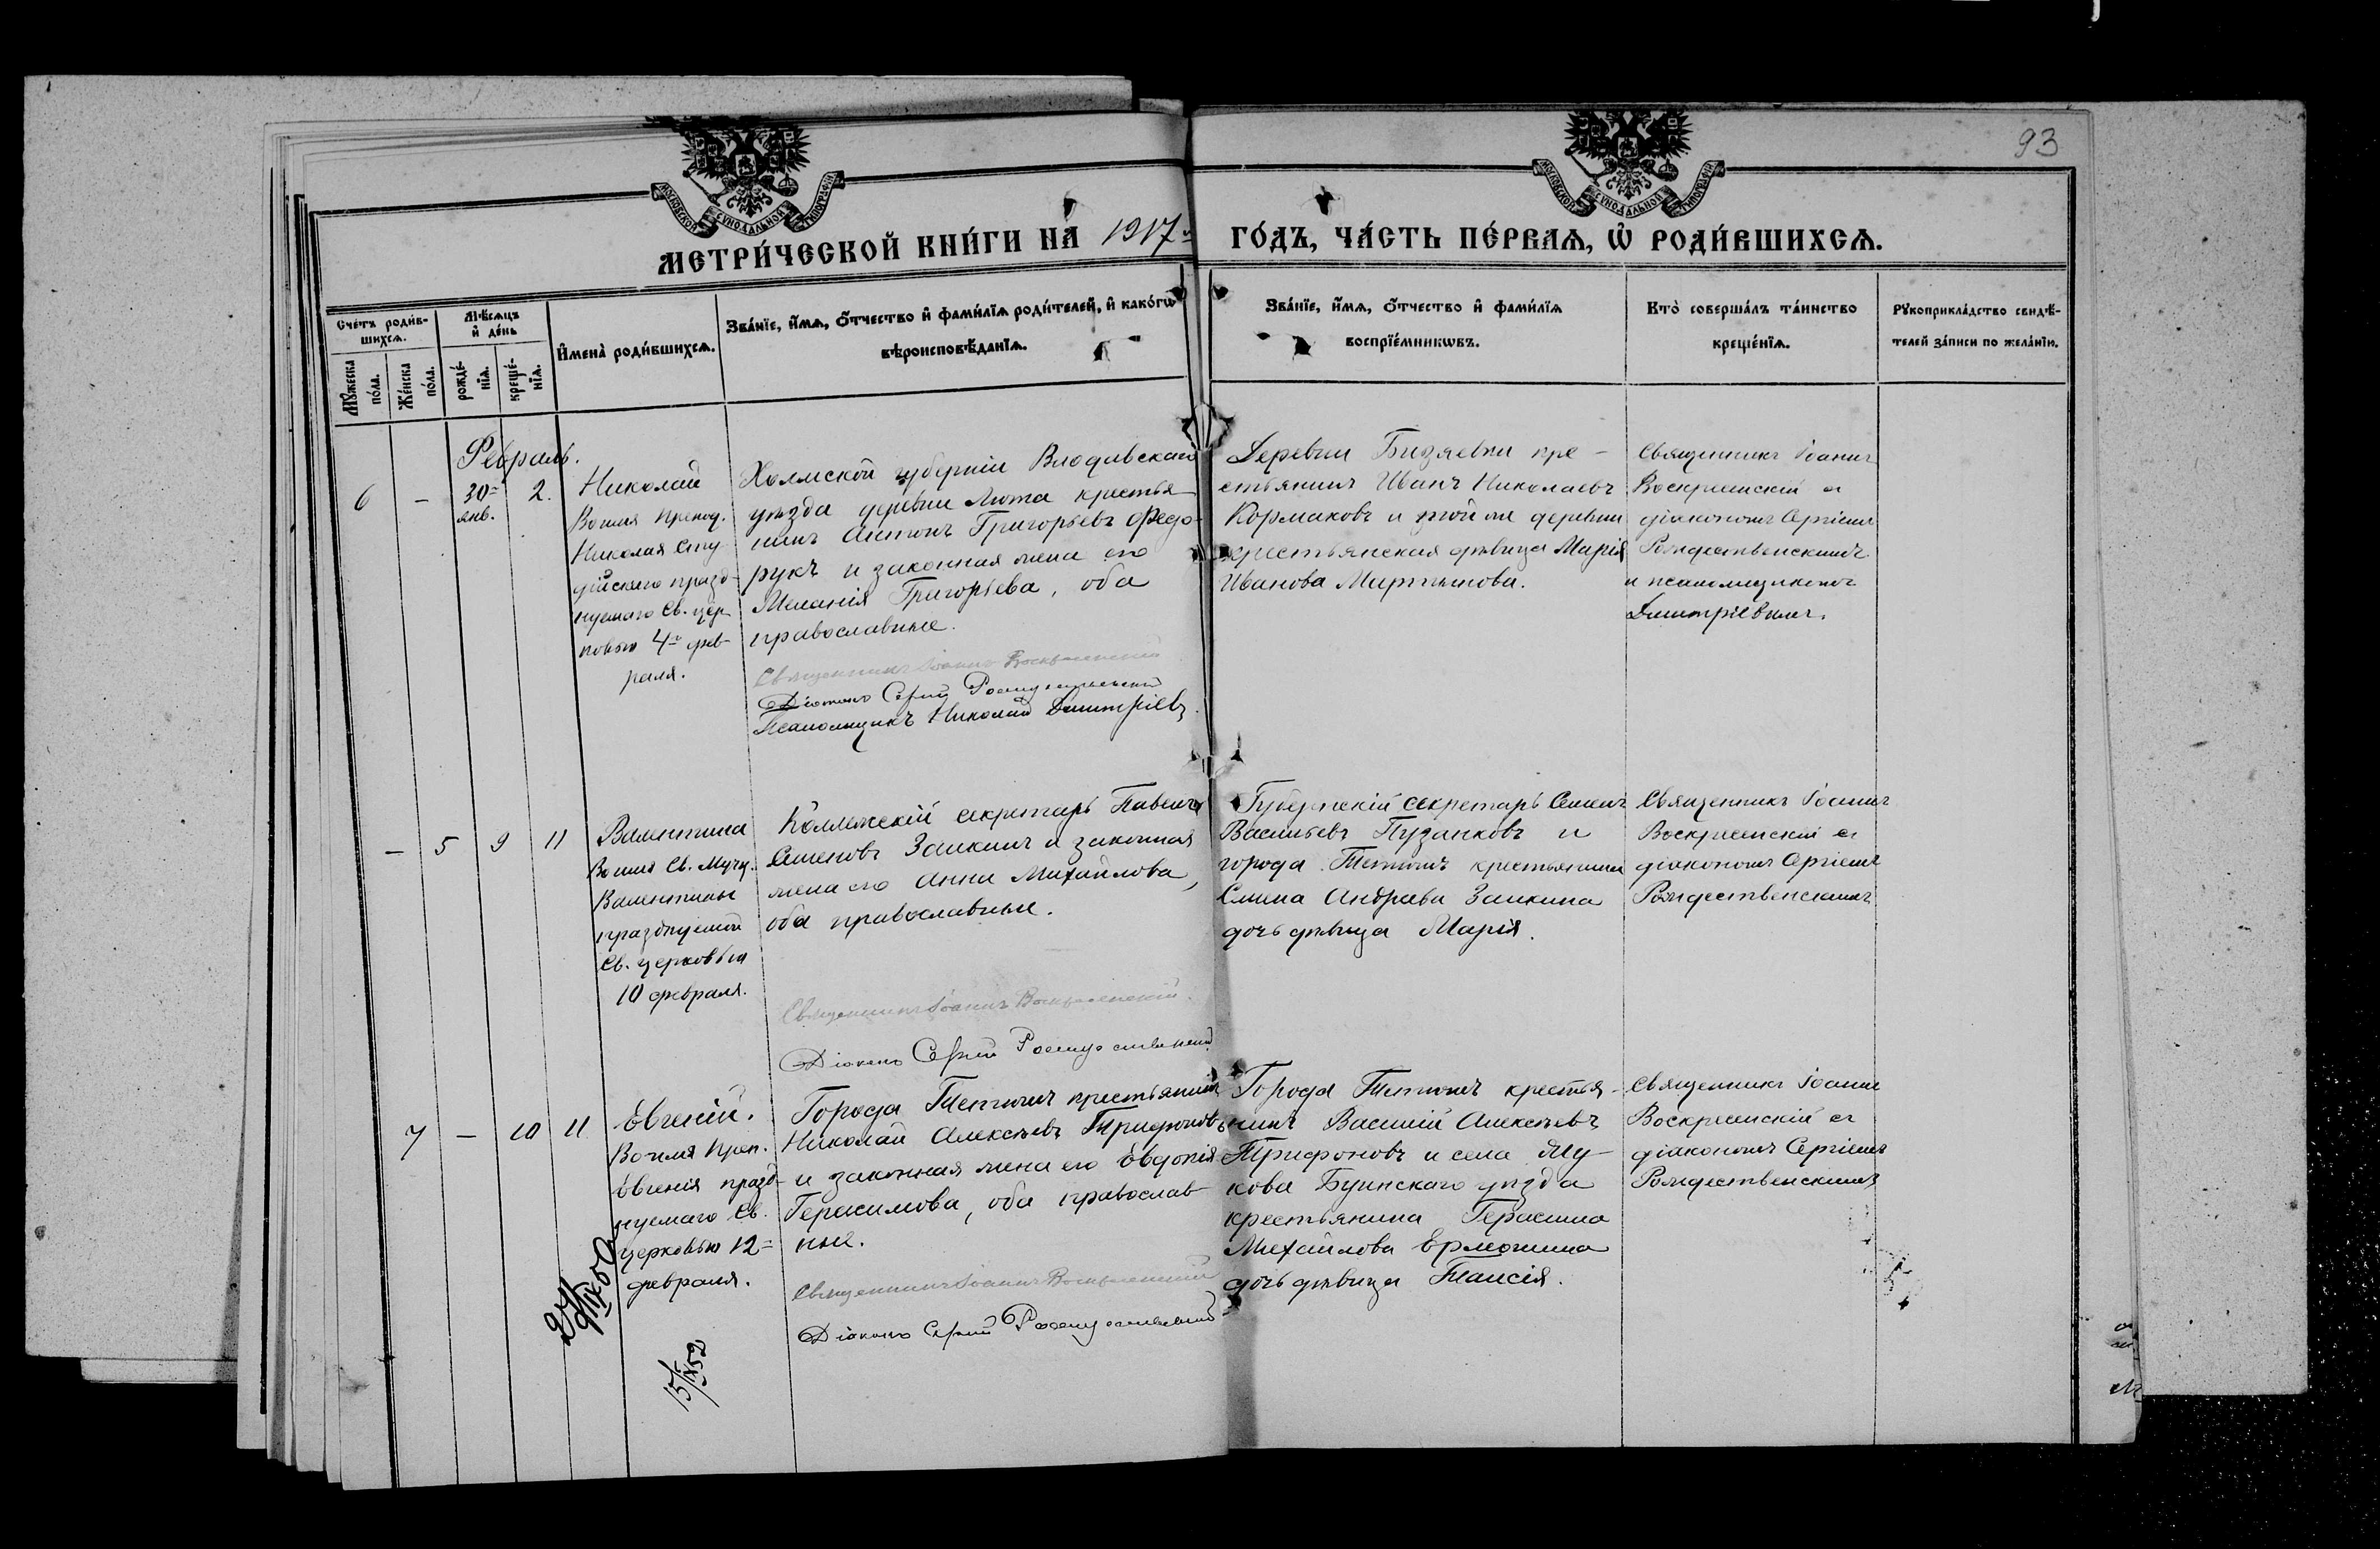 93
МОСКОВСКОЙ СУНОДАЛЬНОЙ ТИПОГРАФІИ
МОСКОВСКОЙ СУНОДАЛЬНОЙ ТИПОГРАФІИ
МЕТРИ́ЧЕСКОЙ КНИ́ГИ НА̀ 1917 ГО́ДЪ, ЧА́СТЬ ПЕ́РВАѦ, Ѡ҆ РОДИ́ВШИХСѦ.
Сче́тъ роди́в-
шихсѧ.
Мꙋ́жеска по́ла.
Же́нска по́ла.
Мѣ́сѧцъ и҆ де́нь
рожде́-нїѧ.
креще́-нїѧ.
И҆мена̀ роди́вшихсѧ.
Зва́нїе, и҆́мѧ, ѻ҆́тчество и҆ фами́лїѧ роди́телей, и҆ како́гѡ
вѣроисповѣ́данїѧ.
Зва́нїе, и҆́мѧ, ѻ҆́тчество и҆ фами́лїѧ
воспрїе́мникѡвъ.
Кто̀ соверша́лъ та́инство
креще́нїѧ.
Рꙋкоприкла́дство свидѣ́-
телей за́писи по жела́нїю.
Февраль.
6 - 30 янв. 2.
Николай
Во имя препод.
Николая Сту-
дійскаго празд-
нуемаго Св. цер-
ковью 4 фев-
раля.
Холмской губерніи Влодавскаго
уѣзда деревни Люта крестья-
нинъ Антонъ Григорьевъ Федо-
рукъ и законная жена его
Меланія Григорьева, оба
православные.
Священникъ Іоаннъ Воскресенскій
Діаконъ Сергій Рождественскій
Псаломщикъ Николай Дмитріевъ
Деревни Бизяевки кре-
стьянинъ Иванъ Николаевъ
Кормаковъ и той же деревни
крестьянская дѣвица Марія
Иванова Мартынова.
Священникъ Іоаннъ
Воскресенскій съ
діакономъ Сергіемъ
Рождественскимъ
и псаломщикомъ
Дмитріевымъ.
- 5 9 11
Валентина
Во имя Св. Муч.
Валентины
празднуемой
Св. церковью
10 февраля.
Коллежскій секретарь Павелъ
Семеновъ Заикинъ и законная
жена его Анна Михайлова,
оба православные.
Священникъ Іоаннъ Воскресенскій.
Діаконъ Сергій Рождественскій
Губернскій секретарь Семенъ
Васильевъ Пузанковъ и
города Тетюшъ крестьянина
Семена Андреева Заикина
дочь дѣвица Марія.
Священникъ Іоаннъ
Воскресенскій съ
діакономъ Сергіемъ
Рождественскимъ
7 - 10 11
Евгеній.
Во имя преп.
Евгенія празд-
нуемаго Св.
церковью 12
февраля.
Города Тетюшъ крестьянинъ
Николай Алексѣевъ Трифоновъ
и законная жена его Евдокія
Герасимова, оба православ-
ные.
Священникъ Іоаннъ Воскресенскій
Діаконъ Сергій Рождественскій
Города Тетюшъ крестья-
нинъ Василій Алексѣевъ
Трифоновъ и села
Буинскаго уѣзда
крестьянина Герасима
Михайлова Ермошина
дочь дѣвица Таисія.
Священникъ Іоаннъ
Воскресенскій съ
діакономъ Сергіемъ
Рождественскимъ